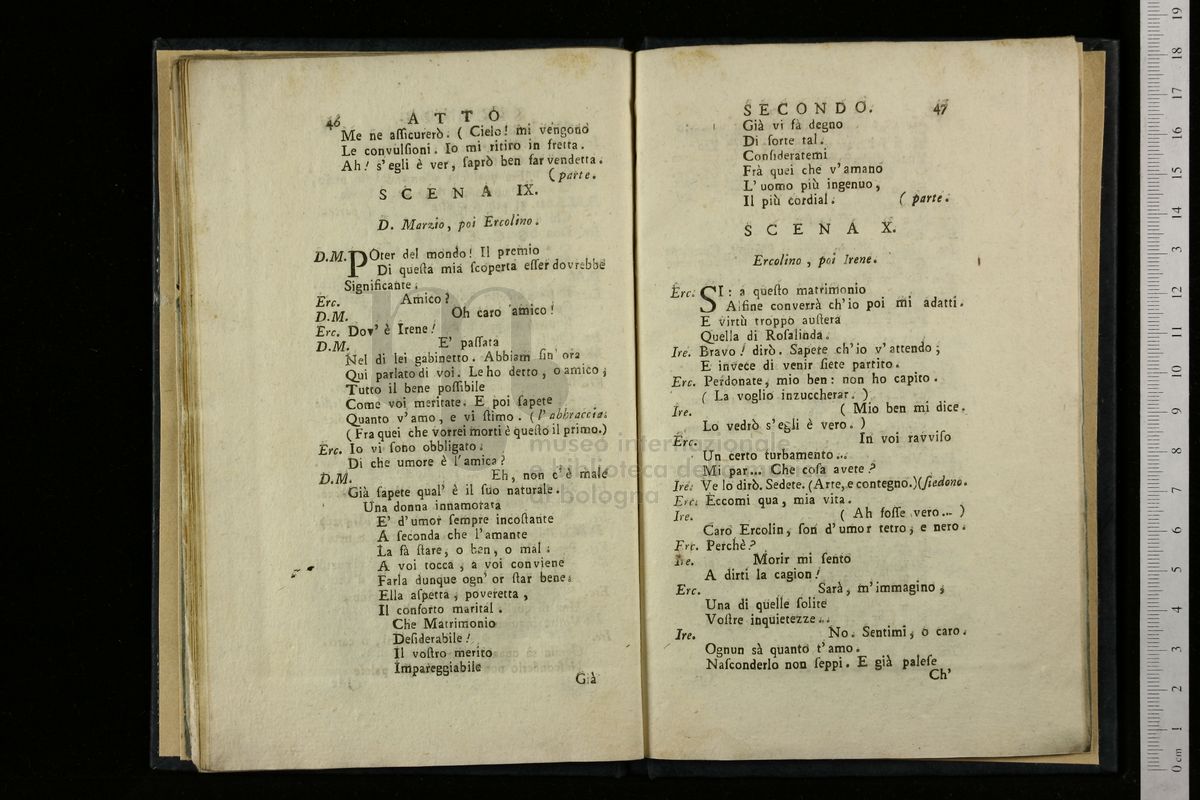 46 ATTO
Me ne aſſicurerò. ( Cielo! mi vengono
Le convulſioni. Io mi ritiro in fretta.
Ah! s'egli è ver, ſaprò ben far vendetta.
( parte.
SCENA IX.
D. Marzio, poi Ercolino.
D.M. POter del mondo! Il premio
Di queſta mia ſcoperta eſſer dovrebbe
Significante.
Erc. Amico?
D.M. Oh caro amico!
Erc. Dov' è Irene!
D.M. E' paſſata
Nel di lei gabinetto. Abbiam ſin' ora
Qui parlato di voi. Le ho detto, o amico,
Tutto il bene poſſibile
Come voi meritate. E poi ſapete
Quanto v'amo, e vi ſtimo. (l'abbraccia.
(Fra quei che vorrei morti è queſto il primo.)
Erc. Io vi ſono obbligato.
Di che umore è l'amica?
D.M. Eh, non c'è male
Già ſapete qual' è il ſuo naturale.
Una donna innamorata
E' d'umor ſempre incoſtante
A ſeconda che l'amante
La fà ſtare, o ben, o mal.
A voi tocca, a voi conviene
Farla dunque ogn' or ſtar bene.
Ella aſpetta, poveretta,
Il conforto marital.
Che Matrimonio
Deſiderabile!
Il voſtro merito
Impareggiabile
Già
SECONDO. 47
Già vi fà degno
Di ſorte tal.
Conſideratemi
Frà quei che v'amano
L'uomo più ingenuo,
Il più cordial. ( parte.
SCENA X.
Ercolino, poi Irene.
Erc. SI: a queſto matrimonio
Alfine converrà ch'io poi mi adatti.
E virtù troppo auſtera
Quella di Roſalinda.
Ire. Bravo! dirò. Sapete ch'io v'attendo;
E invece di venir ſiete partito.
Erc. Perdonate, mio ben: non ho capito.
( La voglio inzuccherar. )
Ire. ( Mio ben mi dice.
Lo vedrò s'egli è vero. )
Erc. In voi ravviſo
Un certo turbamento...
Mi par... Che coſa avete?
Ire. Ve lo dirò. Sedete. (Arte, e contegno.)(ſiedono.
Erc. Eccomi qua, mia vita.
Ire. ( Ah foſſe vero... )
Caro Ercolin, ſon d'umor tetro, e nero.
Erc. Perchè?
Ire. Morir mi ſento
A dirti la cagion!
Erc. Sarà, m'immagino,
Una di quelle ſolite
Voſtre inquietezze...
Ire. No. Sentimi, o caro.
Ognun sà quanto t'amo.
Naſconderlo non ſeppi. E già paleſe
Ch'
museo internazionale
e biblioteca della musica
di bologna
0 cm 1 2 3 4 5 6 7 8 9 10 11 12 13 14 15 16 17 18 19